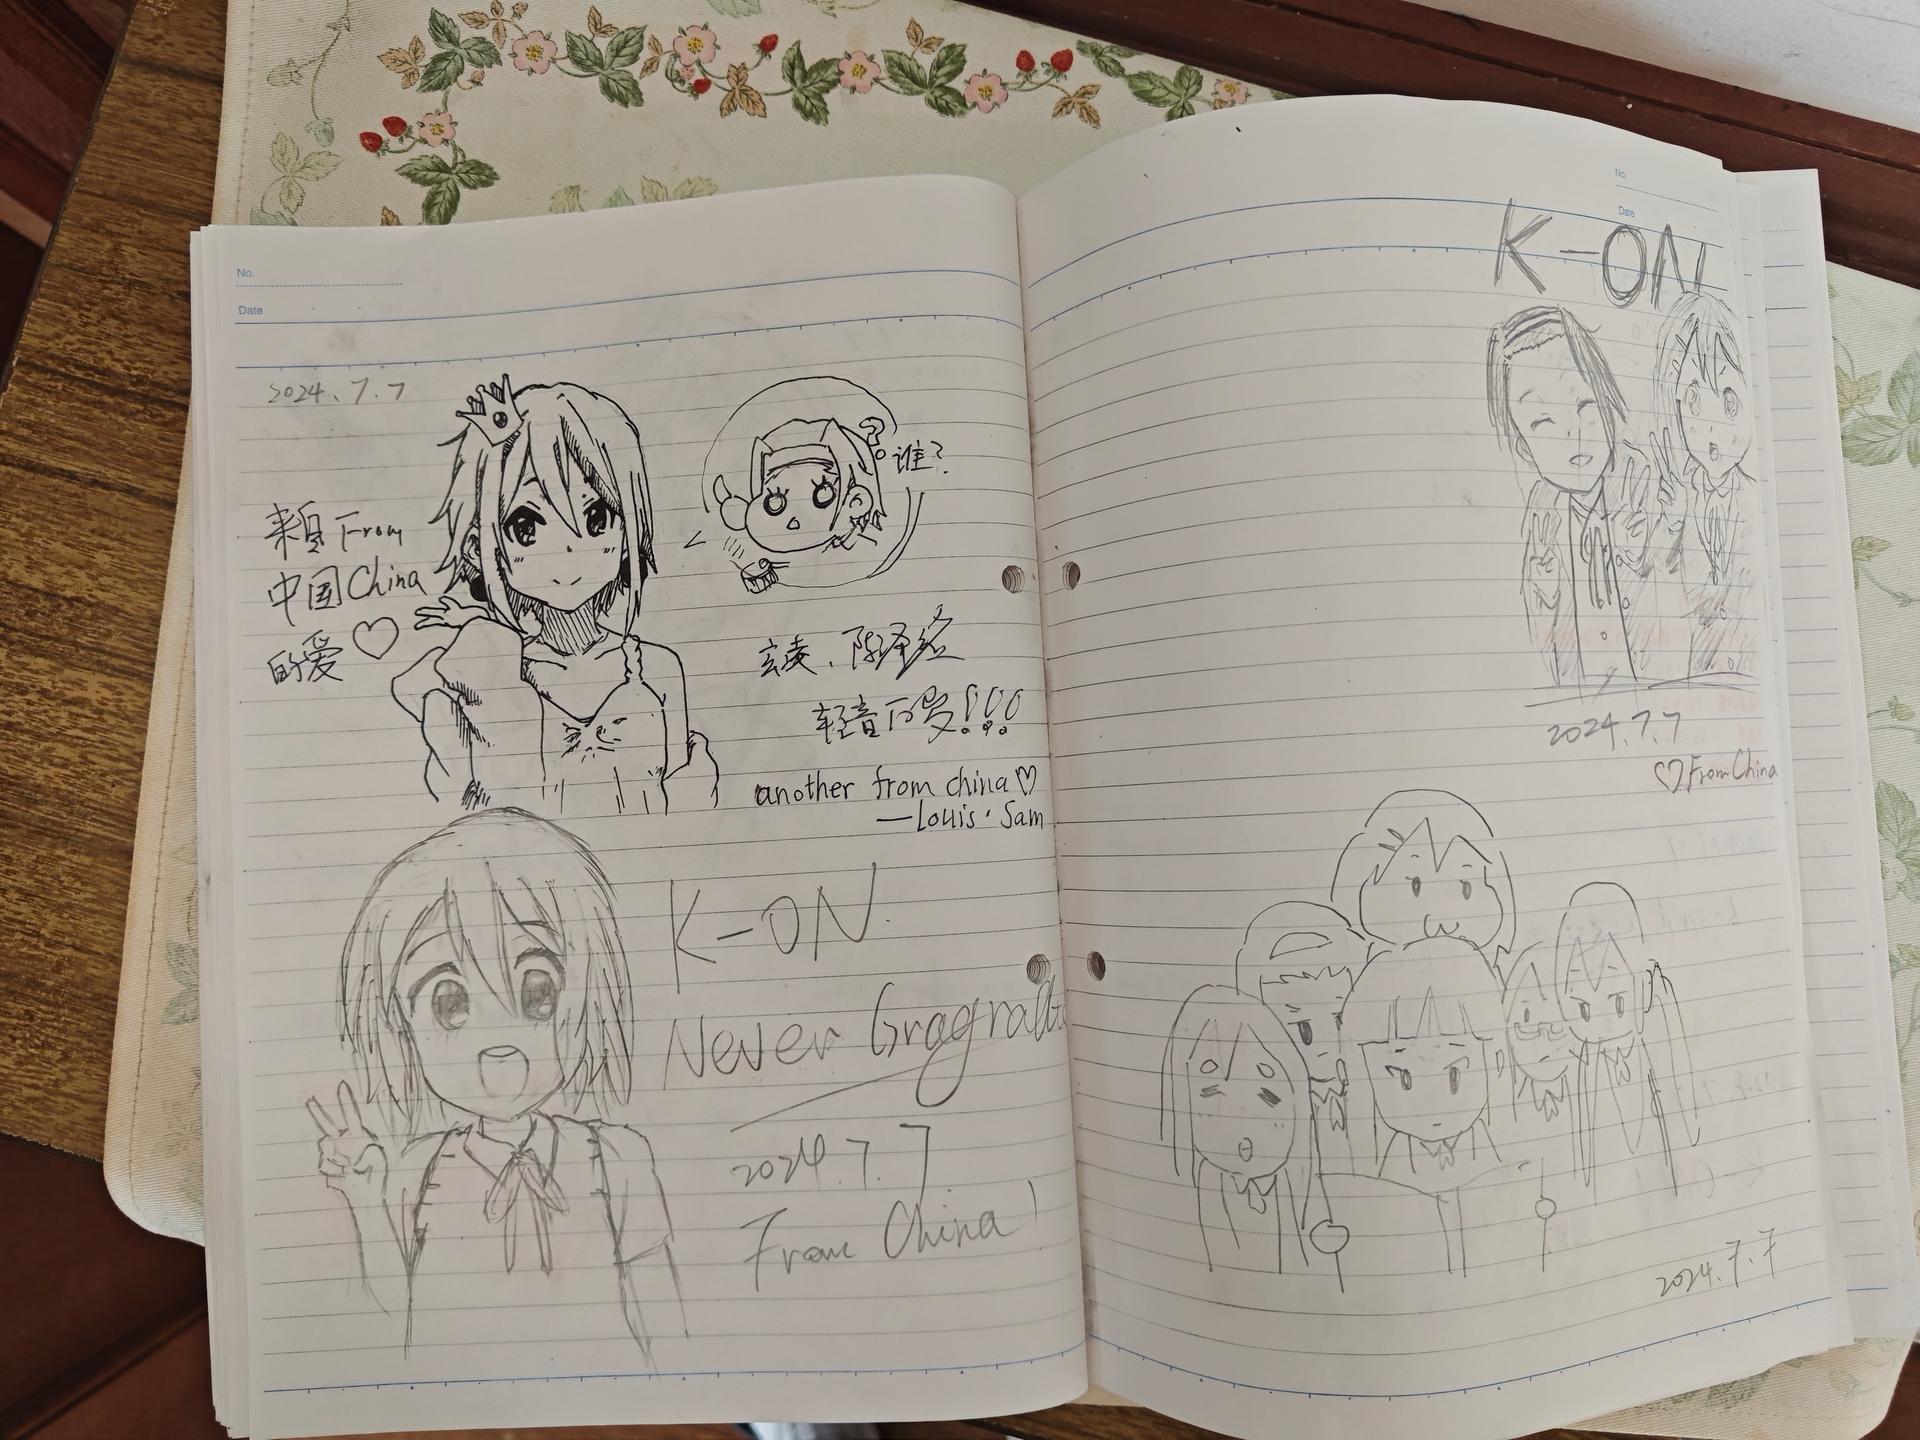 No.
Date
2024.7.7
谁?
来自 From
中国 China
的爱
轻音不灭!!!
another from china
—Louis·Sam
K-ON
Never
2024.7.7
From China!
No.
Date
K-ON
2024.7.7
From China
2024.7.7